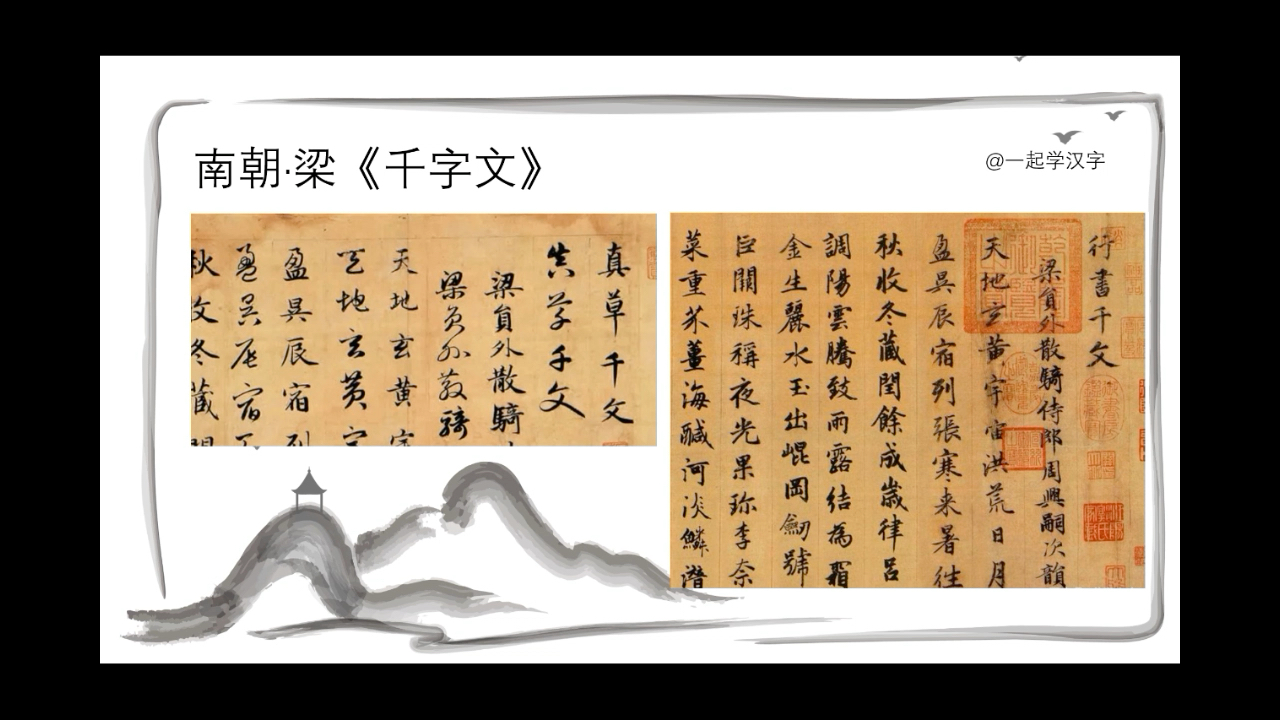 南朝·梁《千字文》
@一起学汉字
真草千文
真草千文
梁員外散騎
梁員外散騎
天地玄黄宇
天地玄黄宇
盈昃辰宿列
盈昃辰宿列
秋收冬藏閏
行書千文
梁員外散騎侍郎周興嗣次韻
天地玄黄宇宙洪荒日月
盈昃辰宿列張寒来暑往
秋收冬藏閏餘成歲律吕
調陽雲騰致雨露結為霜
金生麗水玉出崐岡劒號
巨闕珠稱夜光果珎李柰
菜重芥薑海醎河淡鱗潛